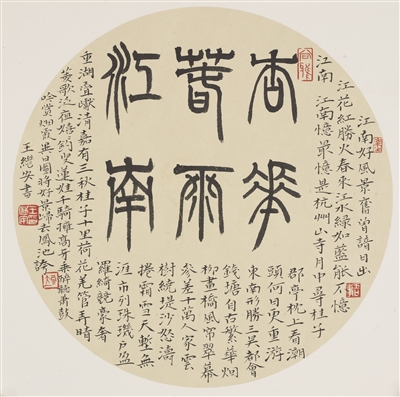 杏花
春雨
江南
江南好風景舊曾諳日出
江花紅勝火春來江水緑如藍能不憶
江南 江南憶最憶是杭州山寺月中尋桂子
郡亭枕上看潮
頭何日更重游
東南形勝三吳都會
錢塘自古繁華烟
柳畫橋風帘翠幕
參差十萬人家雲
樹繞堤沙怒濤
捲霜雪天塹無
涯市列珠璣户盈
羅綺競豪奢
重湖疊巘清嘉有三秋桂子十里荷花羌管弄晴
菱歌泛夜嬉〻釣叟蓮娃千騎擁高牙乘醉聽蕭鼓
吟賞烟霞異日圖將好景歸去鳳池誇
王安書